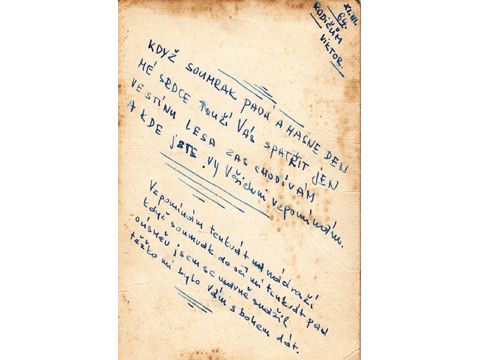 64.
RODIČŮM
VIKTOR.
KDYŽ SOUMRAK PADÁ A HASNE DEN
MÉ SRDCE TOUŽÍ VÁS SPATŘIT JEN
VE STÍNU LESA ZAS CHODÍVÁM
A KDE JSTE VY Všichni vzpomínám.
Vzpomínám tenkrát na nádraží
když soumrak do očí mi tenkrát pad
oúsměv jsem se marně snažil
těžko mi bylo Vám s bohem dát.